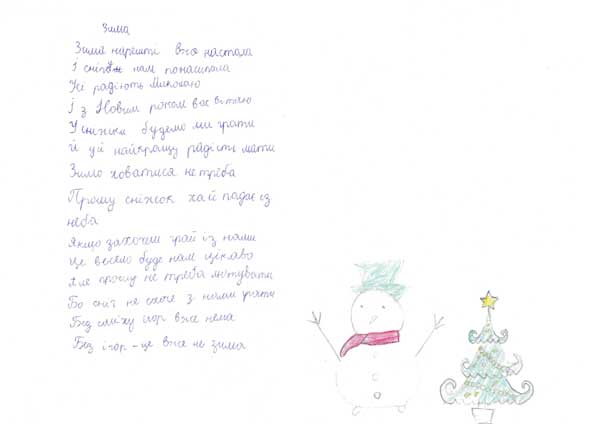 Зима
Зима нарешті вже настала
І сніг нам понасипала
Усі радіють Миколаю
І з Новим роком всіх вітаю
У сніжки будемо ми грати
Й уй найкращу радість мати
Зимо ховатися не треба
Прошу сніжок хай падає із
неба
Якщо захочеш грай із нами
Це весело буде нам цікаво
Але прошу не треба лютувати
Бо сніг не схоче з нами грати
Без сміху ігор вже нема
Без ігор - це вже не зима